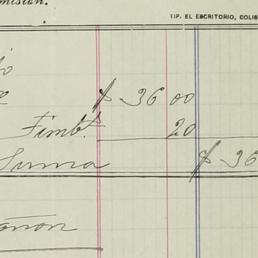 misión.
TIP. EL ESCRITORIO, COLIS
$ 36 00
Timbs 20
Suma $ 36
añon